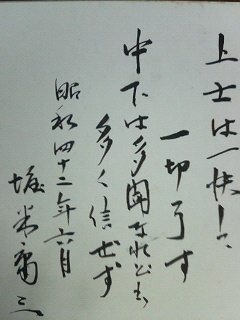 上士は一決して
一切了す
中下は多聞なれども
多く信ぜず
昭和四十二年六月
堀米庸三